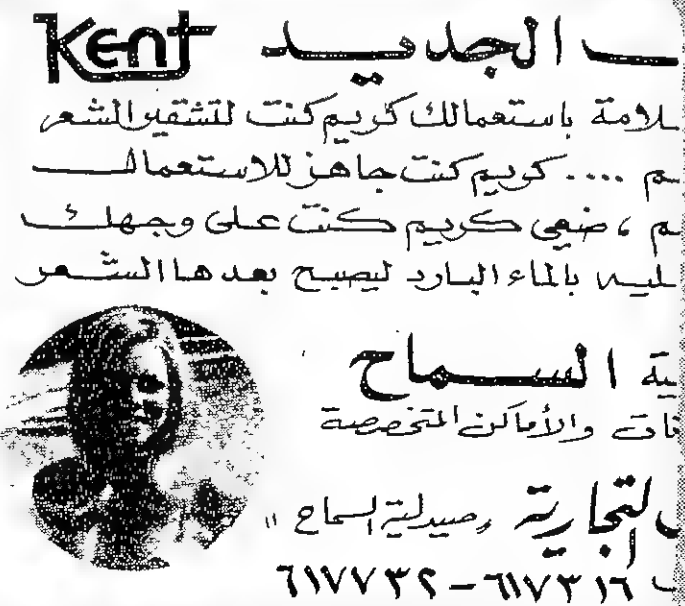 ـب الجديـد Kent
ـلامة باستعمالك كريم كنت لتشقير الشعر
ـم .... كريم كنت جاهز للاستعمال
ـم ، ضعي كريم كنت على وجهك
ـليـه بالماء البارد ليصبح بعدها الشعر
ـية السماح
ـات والأماكن المتخصصة
التجارية "صيدلية السماح"
٦١٧٣١٦ – ٦١٧٧٣٢